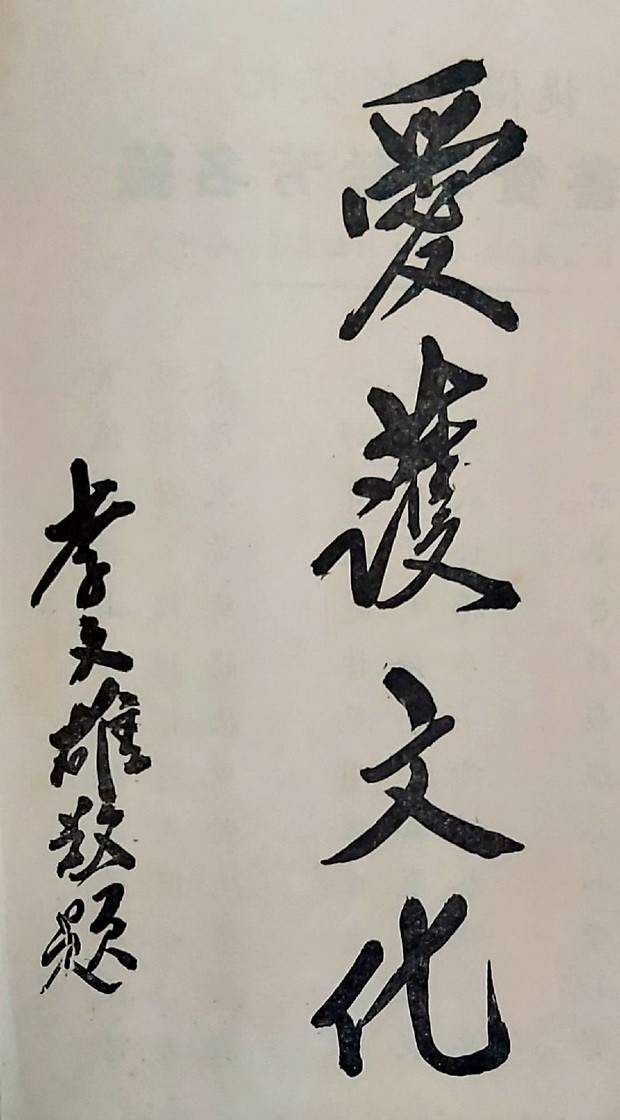 愛護文化
李文雄敬題